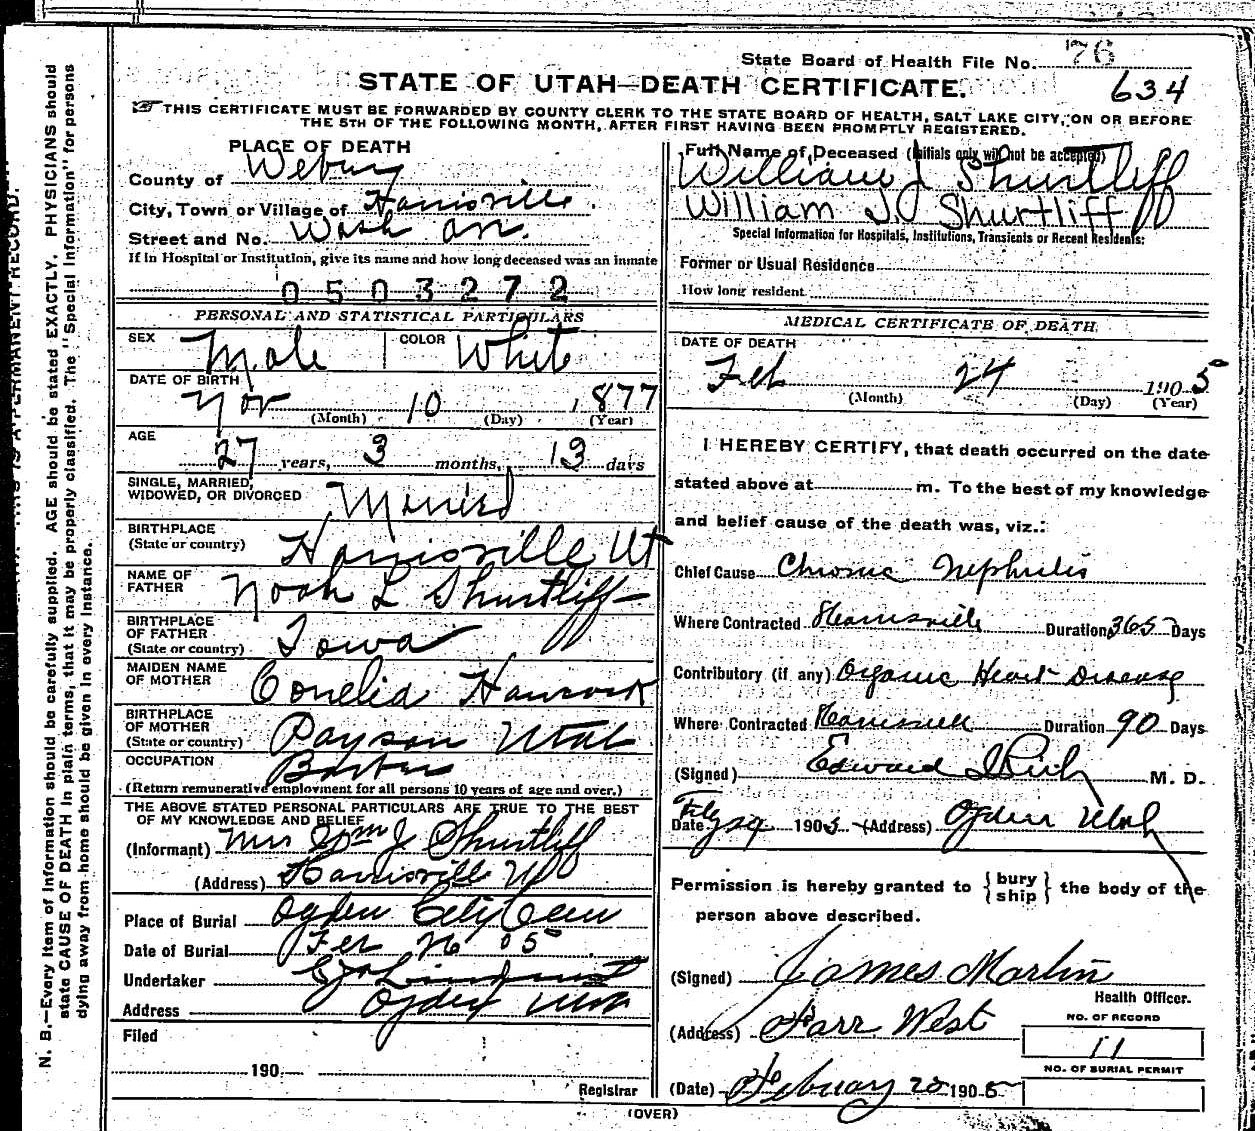 State Board of Health File No. 76
634
STATE OF UTAH—DEATH CERTIFICATE.
THIS CERTIFICATE MUST BE FORWARDED BY COUNTY CLERK TO THE STATE BOARD OF HEALTH, SALT LAKE CITY, ON OR BEFORE
THE 5TH OF THE FOLLOWING MONTH, AFTER FIRST HAVING BEEN PROMPTLY REGISTERED.
PLACE OF DEATH
County of Weber
City, Town or Village of Harrisville
Street and No. Wash Av.
If In Hospital or Institution, give its name and how long deceased was an inmate
0503272
PERSONAL AND STATISTICAL PARTICULARS
SEX Male COLOR White
DATE OF BIRTH
Nov 10 1877
(Month) (Day) (Year)
AGE
27 years, 3 months, 13 days
SINGLE, MARRIED,
WIDOWED, OR DIVORCED Married
BIRTHPLACE
(State or country) Harrisville Ut
NAME OF
FATHER Noah L Shurtliff
BIRTHPLACE
OF FATHER
(State or country) Iowa
MAIDEN NAME
OF MOTHER Conelia Hancock
BIRTHPLACE
OF MOTHER
(State or country) Payson Utah
OCCUPATION Barber
(Return remunerative employment for all persons 10 years of age and over.)
THE ABOVE STATED PERSONAL PARTICULARS ARE TRUE TO THE BEST
OF MY KNOWLEDGE AND BELIEF
(Informant) Mrs Wm J Shurtliff
(Address) Harrisville Ut
Place of Burial Ogden City Cem
Date of Burial Feb 26 05
Undertaker
Address Ogden Utah
Filed
190
Registrar
Full Name of Deceased (Initials only will not be accepted)
William J Shurtliff
William J. Shurtliff
Special Information for Hospitals, Institutions, Transients or Recent Residents:
Former or Usual Residence
How long resident
MEDICAL CERTIFICATE OF DEATH
DATE OF DEATH
Feb 24 1905
(Month) (Day) (Year)
I HEREBY CERTIFY, that death occurred on the date
stated above at m. To the best of my knowledge
and belief cause of the death was, viz.:
Chief Cause Chronic Nephritis
Where Contracted Harrisville Duration 365 Days
Contributory (if any) Organic Heart Disease
Where Contracted Harrisville Duration 90 Days
(Signed) Edward I Rich M. D.
Date 1905 (Address) Ogden Utah
Permission is hereby granted to {bury ship} the body of the
person above described.
(Signed) James Martin
Health Officer.
(Address) Farr West
NO. OF RECORD
11
NO. OF BURIAL PERMIT
(Date) February 25 1905
(OVER)
N. B.—Every item of information should be carefully supplied. AGE should be stated EXACTLY. PHYSICIANS should
state CAUSE OF DEATH in plain terms, that it may be properly classified. The "Special Information" for persons
dying away from home should be given in every instance.